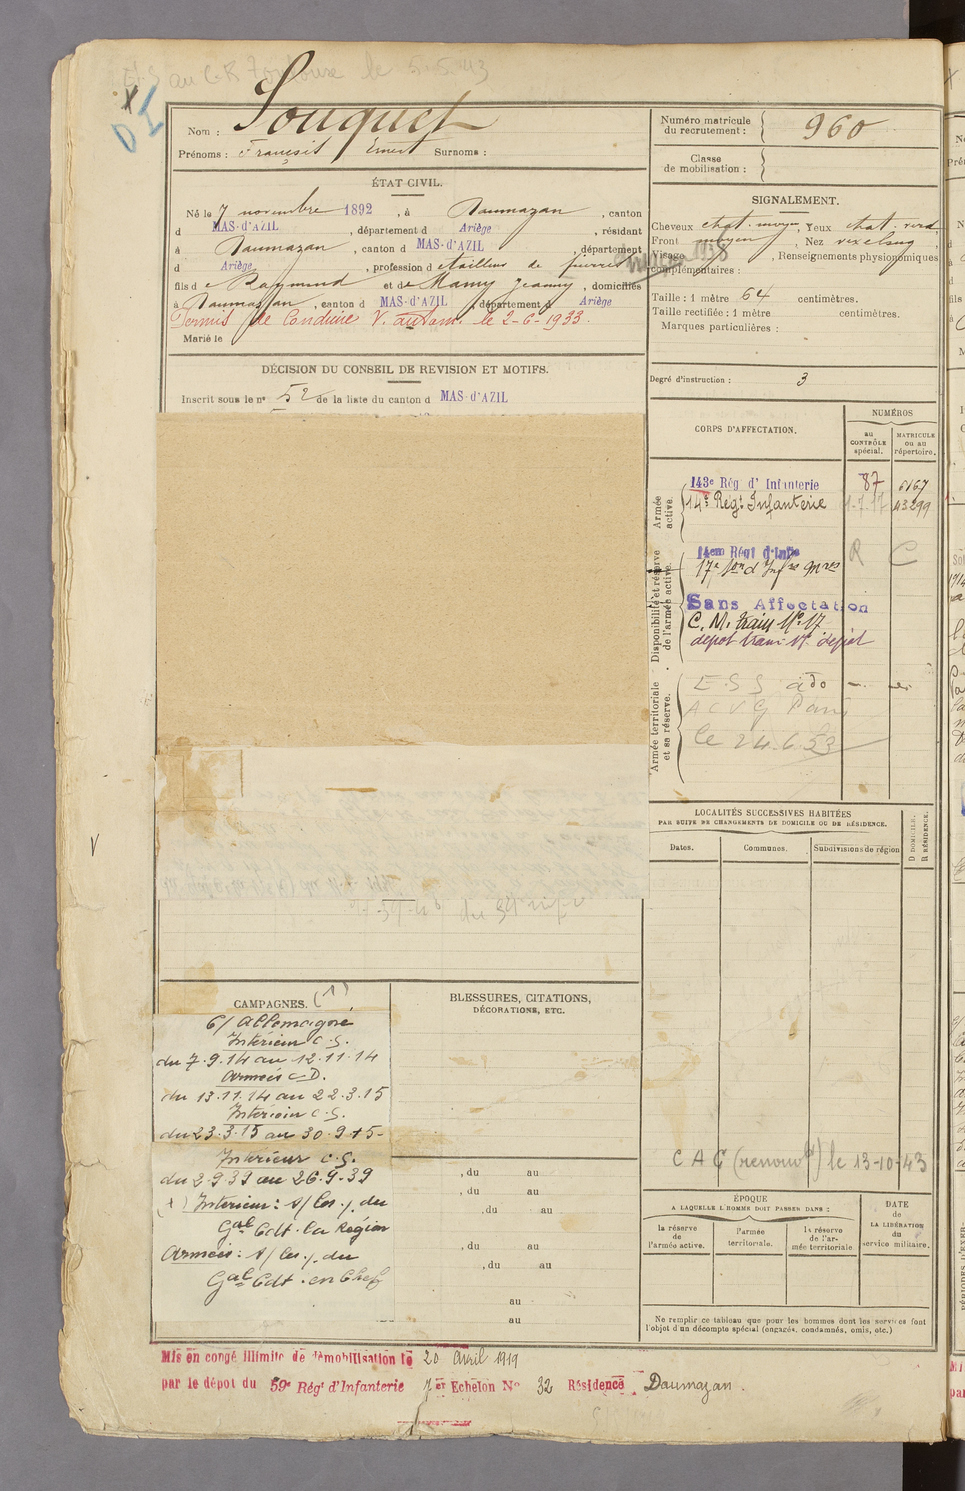 au C.R Toulouse le 5.5.43
Nom : Souquet
Prénoms : François Ernest Surnoms :
Numéro matricule du recrutement : 960
Classe de mobilisation :
ÉTAT CIVIL.
Né le 7 novembre 1892, à Daumazan, canton
d MAS-d'AZIL, département d Ariège, résidant
à Daumazan, canton d MAS-d'AZIL, département
d Ariège, profession d tailleur de pierres
fils de Raymond et de Mamy Jeanny, domiciliés
à Daumazan, canton d MAS-d'AZIL, département d Ariège
Permis de Conduire V. autom. le 2-6-1933.
Marié le
SIGNALEMENT.
Cheveux chat. moyen, Yeux chat. verd
Front moyen, Nez
Visage, Renseignements physionomiques
complémentaires :
1938
Taille : 1 mètre 64 centimètres.
Taille rectifiée : 1 mètre centimètres.
Marques particulières :
Degré d'instruction : 3
DÉCISION DU CONSEIL DE REVISION ET MOTIFS.
Inscrit sous le n° 52 de la liste du canton d MAS-d'AZIL
CORPS D'AFFECTATION.
NUMÉROS
au CONTRÔLE spécial.
MATRICULE OU AU répertoire.
Armée active.
143e Rég d' Infanterie 87 6167
14e Régt Infanterie 1.7.17 43299
Disponibilité et réserve de l'armée active.
14em Régt d'Infie R C
Sans Affectation
C. M. train N° 17
dépot train 17 dépot
Armée territoriale et sa réserve.
A C V G Paris
le 24.6.53
LOCALITÉS SUCCESSIVES HABITÉES
PAR SUITE DE CHANGEMENTS DE DOMICILE OU DE RÉSIDENCE.
Dates.
Communes.
Subdivisions de région
D DOMICILE.
R RÉSIDENCE.
CAMPAGNES. (1)
C/ Allemagne
Intérieur C.S.
du 7.9.14 au 12.11.14
Armées C.D.
du 13.11.14 au 22.3.15
Intérieur C.S.
du 23.3.15 au 30.9.15-
Intérieur C.S.
du 2.9.39 au 26.9.39
Intérieur : s/ les /. du
Gal Cdt. la Région
Armées : s/ les /. du
Gal Cdt. en Chef
BLESSURES, CITATIONS,
DÉCORATIONS, ETC.
, du au
, du au
, du au
, du au
, du au
au
au
C A C (renouvt) le 13-10-43
ÉPOQUE
A LAQUELLE L'HOMME DOIT PASSER DANS :
la réserve de l'armée active.
l'armée territoriale.
la réserve de l'armée territoriale
DATE de LA LIBÉRATION du service militaire.
Ne remplir ce tableau que pour les hommes dont les services font
l'objet d'un décompte spécial (engagés, condamnés, omis, etc.)
Mis en congé illimité de démobilisation le 20 avril 1919
par le dépôt du 59e Régt d'Infanterie 7er Echelon N° 32 Résidence Daumazan.